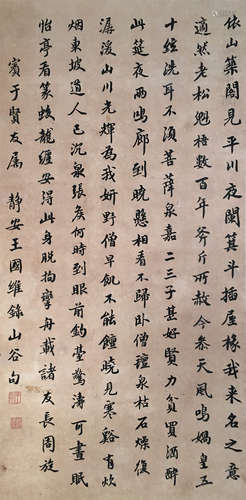 依山築閣見平川夜闌箕斗插屋椽我來名之意
適然老松魁梧數百年斧斤所赦今參天風鳴媧皇五
十絃洗耳不須菩薩泉嘉二三子甚好賢力貧買酒醉
此筵夜雨鳴廊到曉懸相看不歸臥僧氈泉枯石燥復
潺湲山川光輝為我妍野僧早飢不能饘曉見寒谿有炊
烟東坡道人已沉泉張侯何時到眼前釣臺驚濤可晝眠
怡亭看篆蛟龍纏安得此身脫拘攣舟載諸友長周旋
賓于賢友屬 靜安王國維錄山谷句